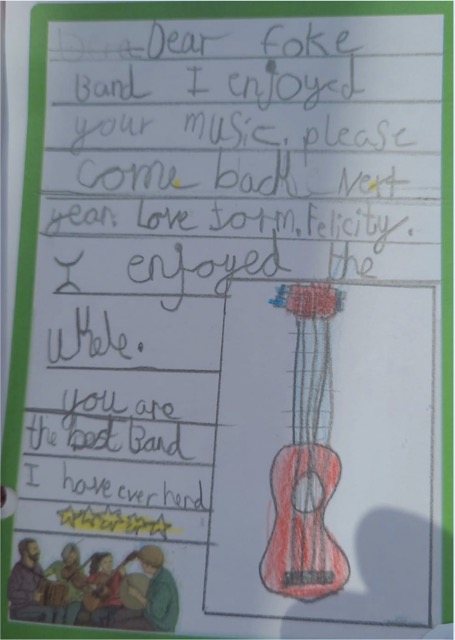 Dear foke
Band I enjoyed
your music. please
come back next
year. Love form. Felicity.
I enjoyed the
ukele.
you are
the best Band
I have ever herd